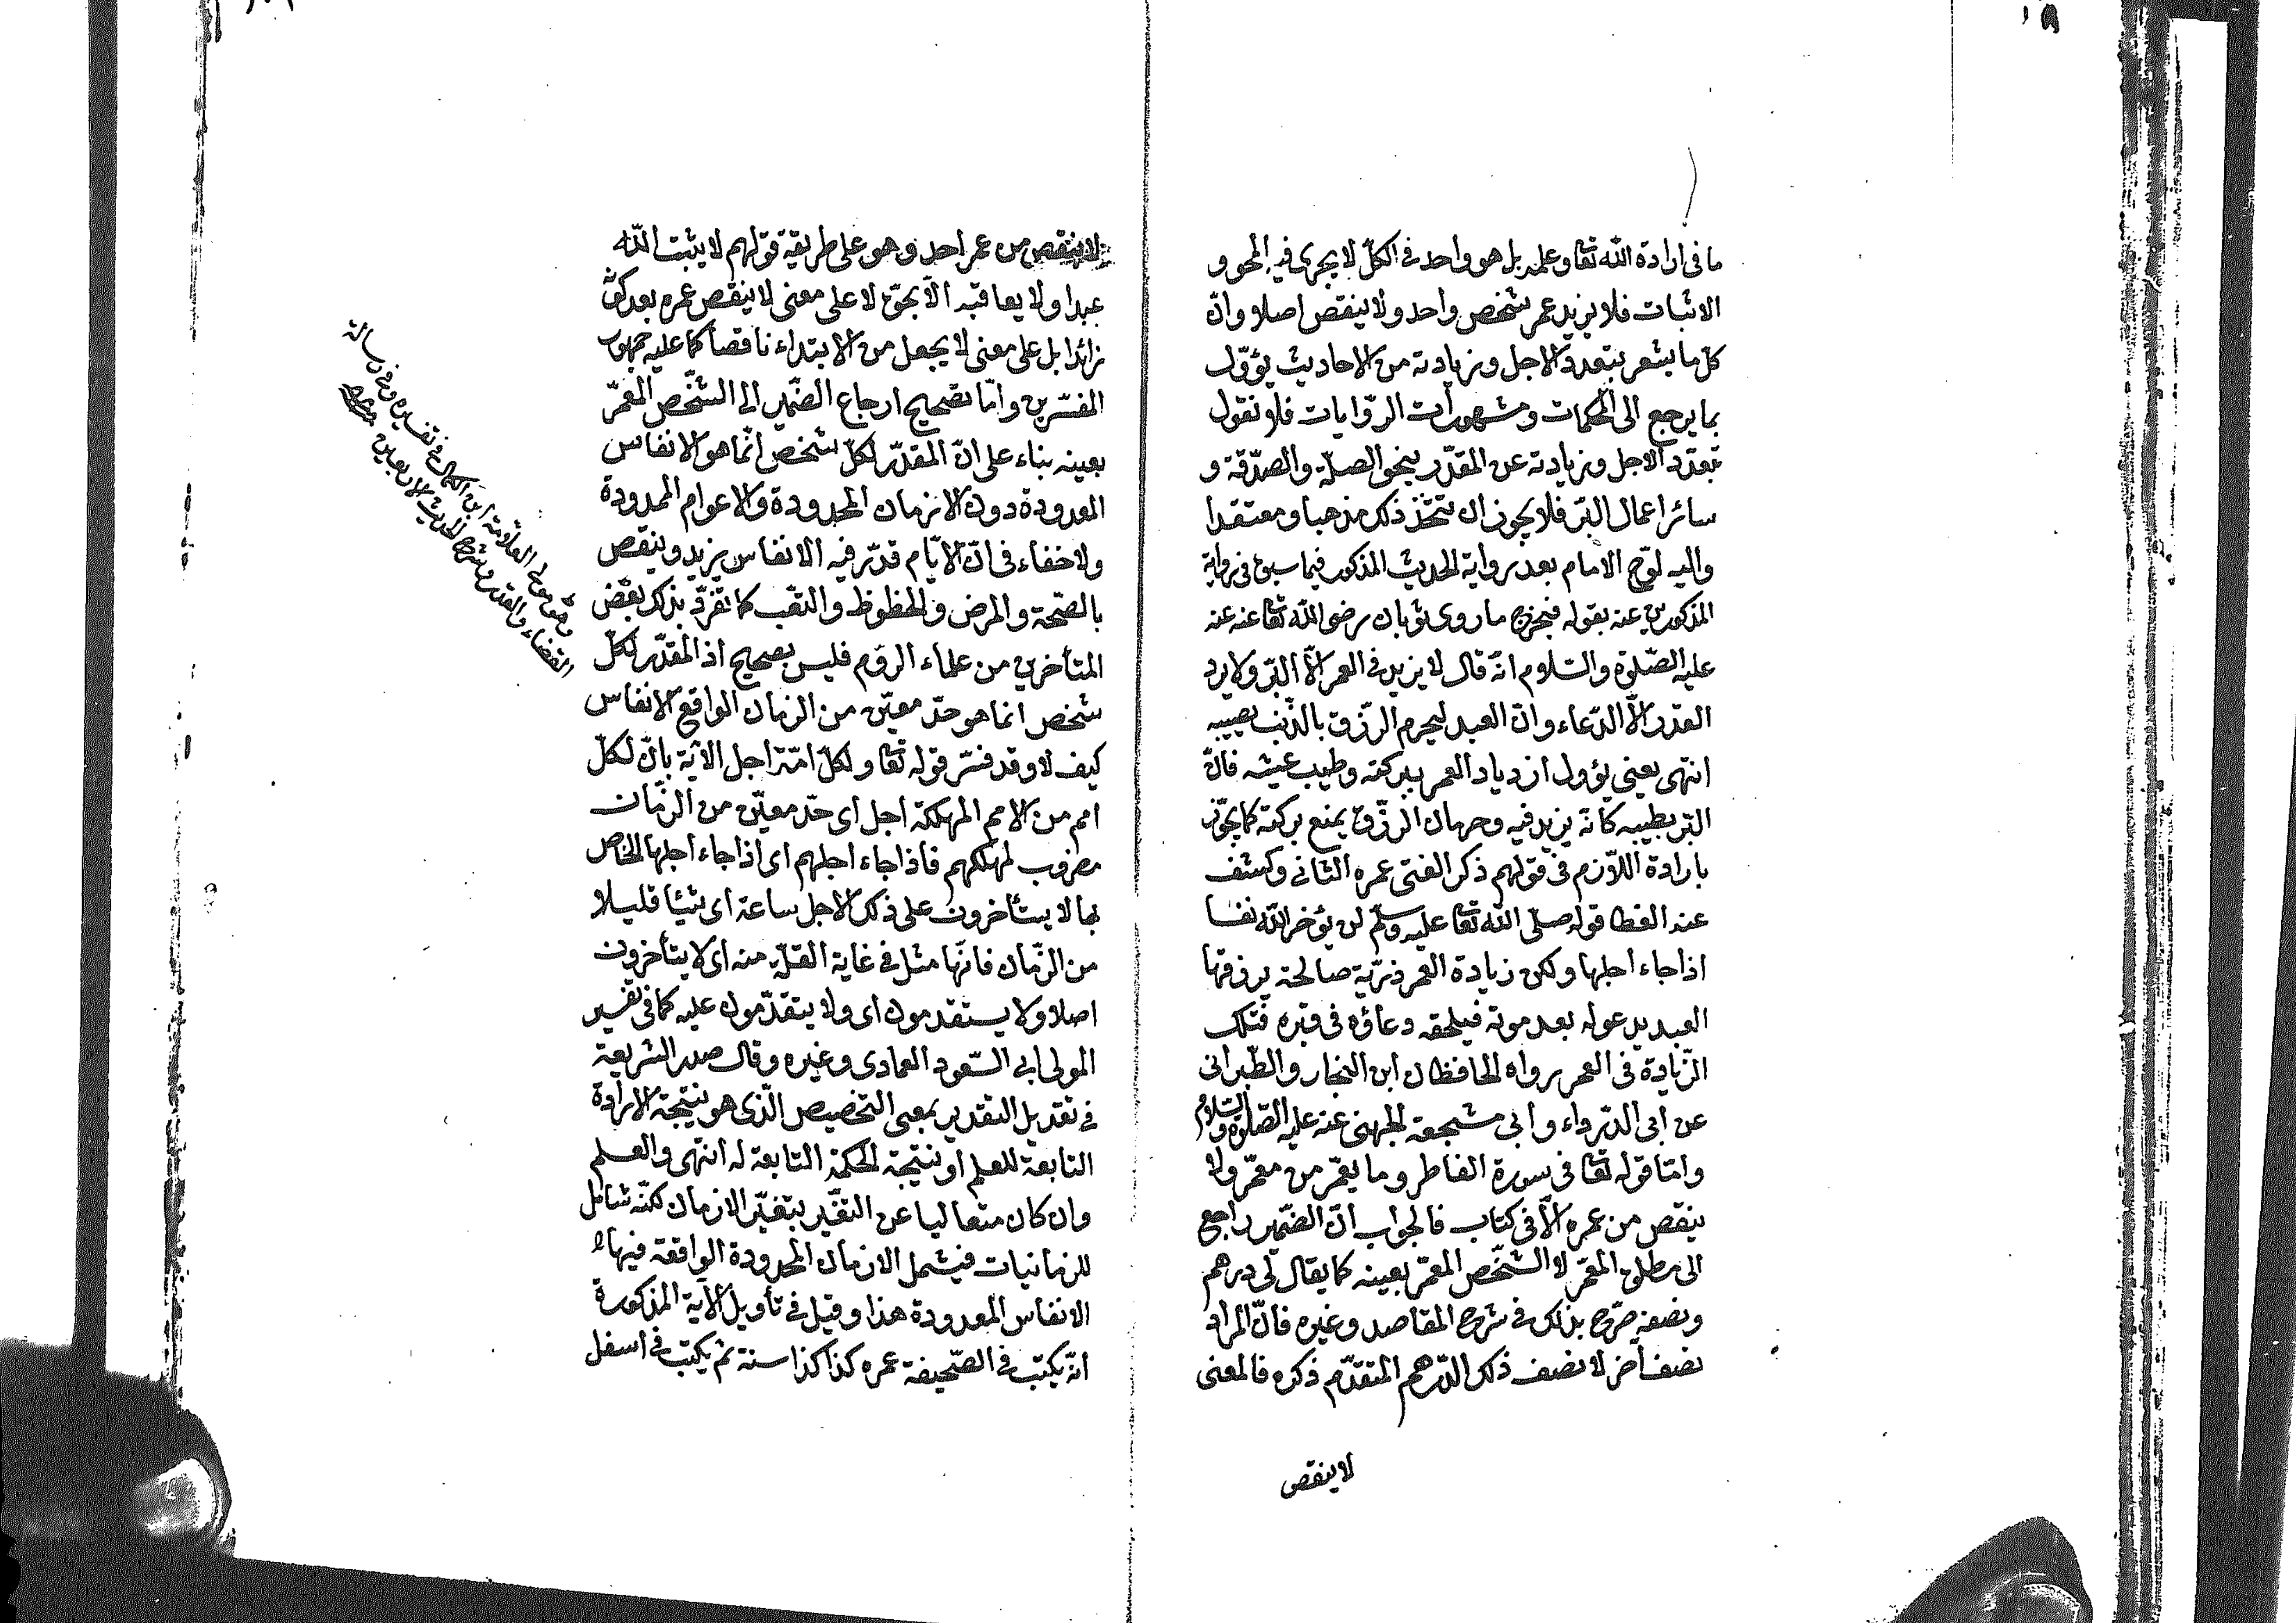 ما فى ارادة الله تعا وعلمه بل هو واحد فى الكل لا يجرى فيه المحو و
الاثبات فلا يزيد عمر شخص واحد ولا ينقص اصلا وانّ
كلّ ما يشعر بتعدد الاجل وزيادته من الاحاديث يؤوّل
بما يرجع الى المحكمات ومشهورات الروايات فلا نقول
بتعدد الاجل وزيادته عن المقدّر بنحو الصلة والصدقة و
سائر اعمال البّر فلا يجوز ان يتّخذ ذلك مذهبا ومعتقدا
واليه لوّح الامام بعد رواية الحديث المذكور فيما سبق فى رواية
المذكورين عنه بقوله فيخرج ما روى ثوبان رضى الله تعا عنه عنه
عليه الصّلوة والسّلام انّه قال لا يزيد فى العمر الّا البّر ولا يرد
القدر الّا الدّعاء وانّ العبد ليحرم الرّزق بالذّنب يصيبه
انتهى يعنى يؤول ازدياد العمر ببركته وطيب عيشه فانّ
البّر يطيبه كانّه يزيد فيه وحرمان الرّزق بمنع بركته كما يجوّز
بارادة اللّازم فى قولهم ذكر الفتى عمره الثانى وكشف
عنه الغطا قوله صلّى الله تعا عليه وسلّم لن يؤخر الله نفسا
اذا جاء اجلها ولكن زيادة العمر ذرّية صالحة يرزقها
العبد يدعو له بعد موته فيلحقه دعاؤه فى قبره فتلك
الزّيادة فى العمر رواه الحافظان ابن النجار والطّبرانى
عن ابى الدّرداء وابى مشجعة الجهنى عنه عليه الصّلوة والسّلام
وامّا قوله تعا فى سورة الفاطر وما يعمّر من معمّر ولا
ينقص من عمره الّا فى كتاب فالجواب انّ الضّمير راجع
الى مطلق المعمّر لا الشّخص المعمّر بعينه كما يقال لى درهم
ونصفه صّرح بذلك فى شرح المقاصد وغيره فانّ المراد
نصف آخر لا نصف ذلك الدّرهم المتقدّم ذكره فالمعنى
لا ينقص
لا ينقص من عمر احد وهو على طريقة قولهم لا يثبت الله
عبدا ولا يعاقبه الّا بحقّ لا على معنى لا ينقص عمره بعد كونه
زائدا بل على معنى لا يجعل من الابتداء ناقصا كما عليه جمهور
المفسّرين وامّا تصحيح ارجاع الضّمير الى الشّخص المعمّر
بعينه بناء على انّ المقدّر لكلّ شخص انّما هو الانفاس
المعدودة دون الازمان المحدودة والاعوام الممدودة
ولا خفاء فى انّ الايّام قدّر فيه الانفاس يزيد وينقص
بالصّحة والمرض والحظوظ والتعّب كما تفرّد بذكر بعض
المتأخرين من علماء الرّوم فليس بصحيح اذ المقدّر لكلّ
شخص انما هو حدّ معيّن من الزمان الواقع الانفاس
كيف لا وقد فسّر قوله تعا ولكلّ امّة اجل الآية بانّ لكلّ
امم من الامم المهلكة اجل اى حدّ معيّن من الزّمان
مضروب لمهلكهم فاذا جاء اجلهم اى اذا جاء اجلها الخاص
بها لا يستأخرون على ذلك الاجل ساعة اى شيئا قليلا
من الزّمان فانّها مثل فى غاية القلّة منه اى لا يتأخرون
اصلا ولا يستقدمون اى ولا يتقدّمون عليه كما فى تفسير
المولى ابى السّعود العمادى وغيره وقال صدر الشريعة
فى تعديل التقدير بمعنى التخصيص الّذى هو نتيجة الارادة
التابعة للعلم او نتيجة الحكمة التابعة له انتهى والعلم
وان كان متعاليا عن التغّير بتغيّر الازمان لكنّه شامل
للزمانيات فيشمل الازمان المحدودة الواقعة فيها
الانفاس المعدودة هذا وقيل فى تأويل الآية المذكورة
انّه يكتب فى الصّحيفة عمره كذا كذا سنة ثم يكتب فى اسفل
وهو مولى العلّامة ابن الكمال فى تفسيره وفى رسالة
القضاء والقدر وشرح الحديث الاربعين